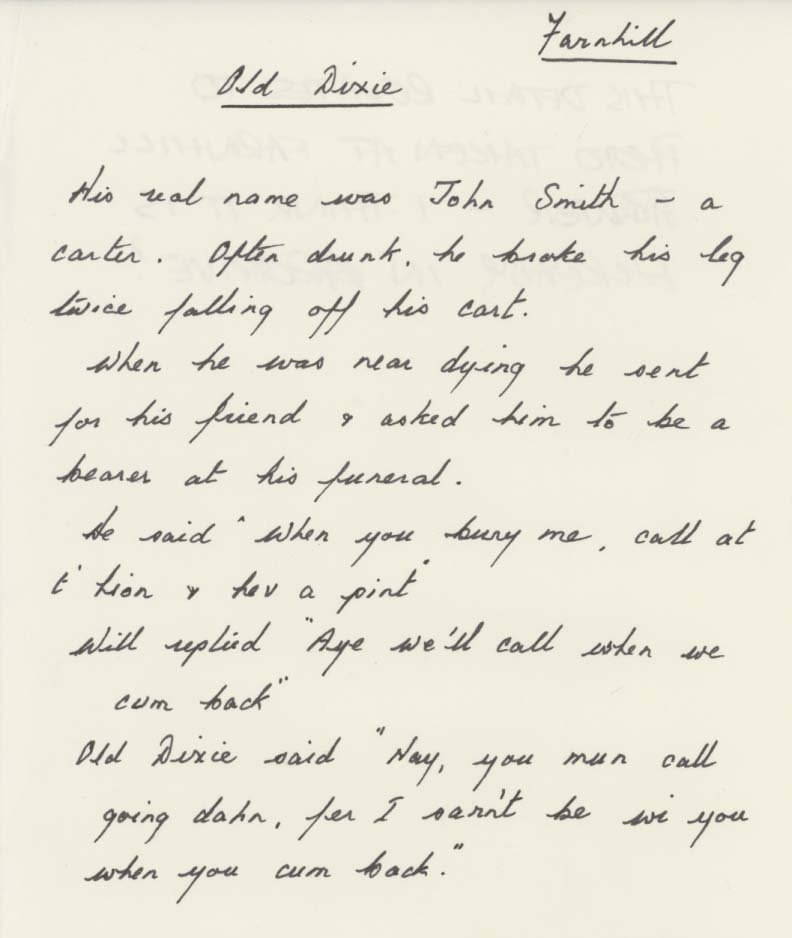 Farnhill
Old Dixie
His real name was John Smith - a
carter. Often drunk, he broke his leg
twice falling off his cart.
When he was near dying he sent
for his friend & asked him to be a
bearer at his funeral.
He said "When you bury me, call at
t' Lion & hev a pint"
Will replied "Aye we'll call when we
cum back"
Old Dixie said "Nay, you mun call
going dahn, fer I sarn't be wi you
when you cum back."